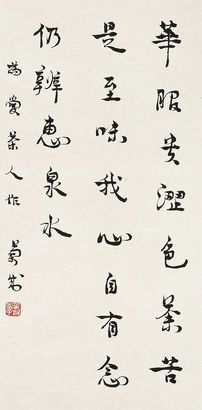 華服貴澀色茶苦
是至味我心自有念
仍辨惠泉水
愛茶人作